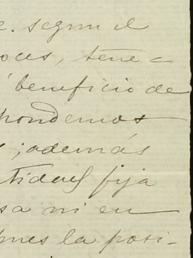 e. segun el
oces, tene-
beneficio de
pondemos
; además
tidad fija
sa ni en
ones la posi-